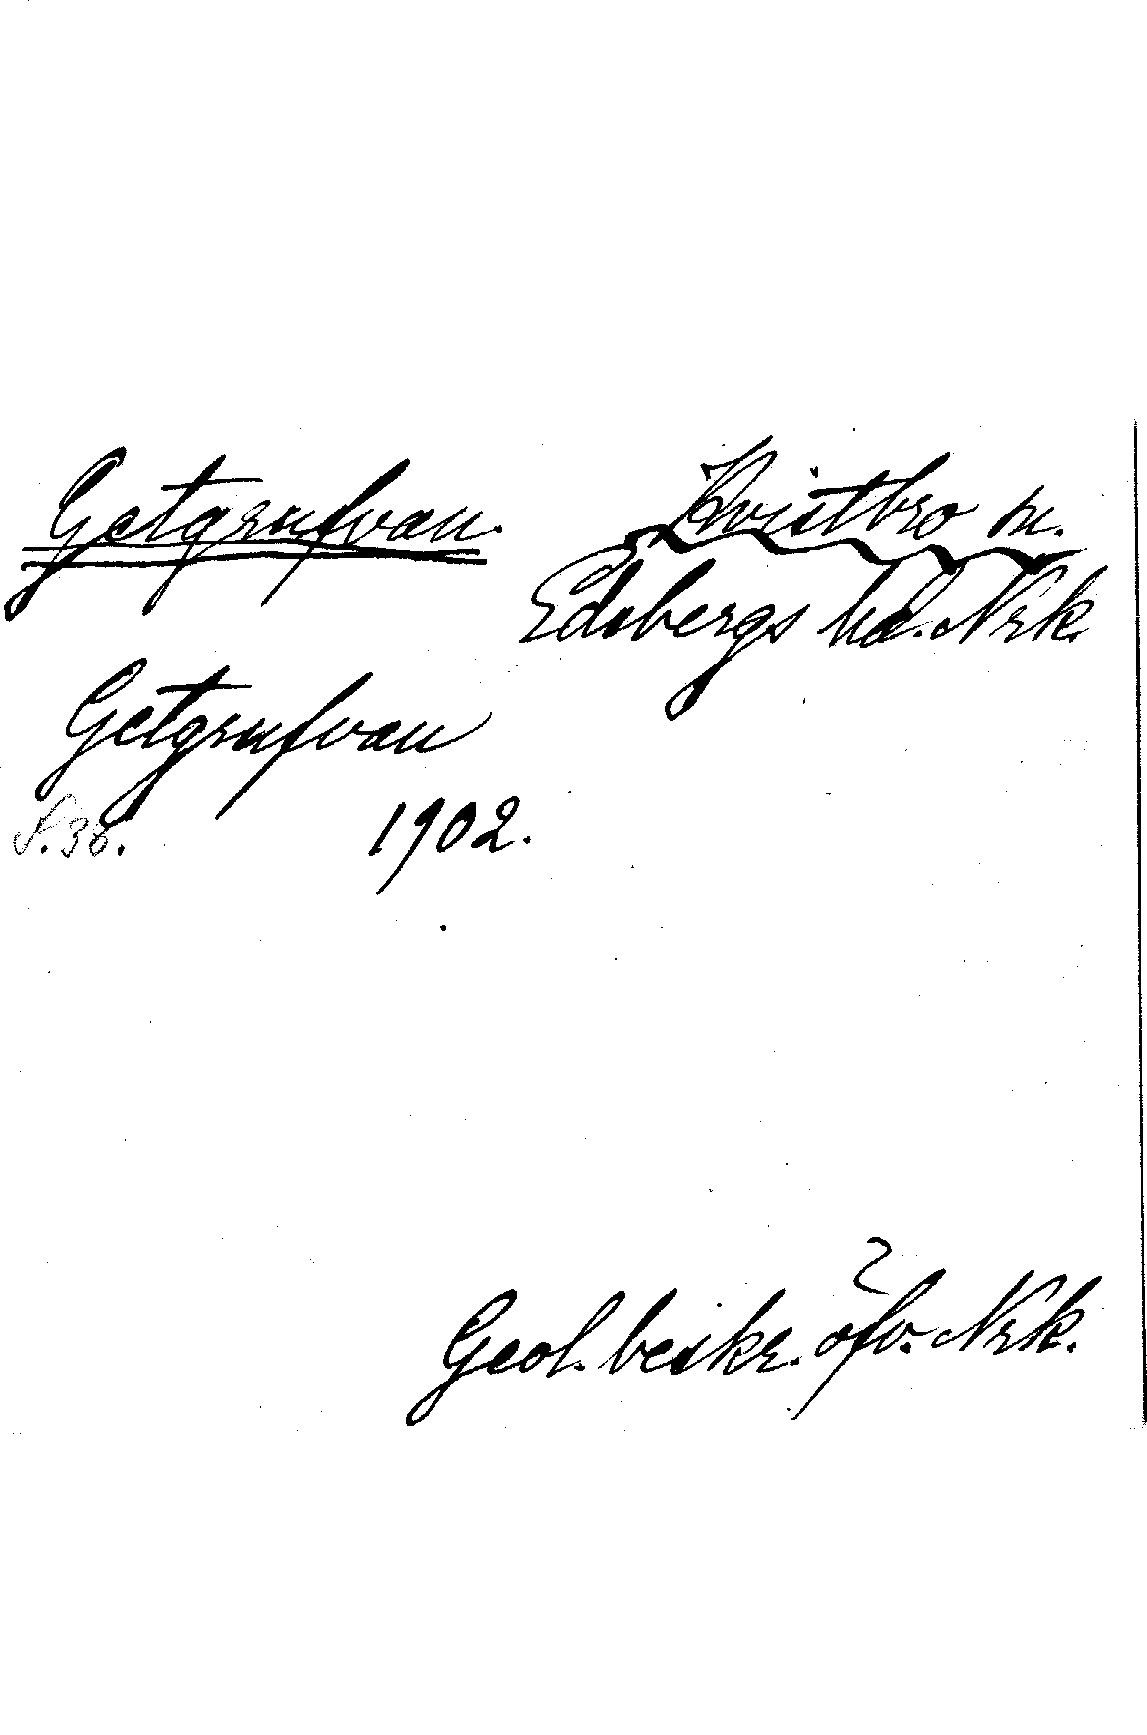 Getgrufvan. Kvistbro sn.
Edsbergs hd. Nrk.
Getgrufvan
S. 38. 1902.
Geol. beskr. öfv. Nrk.